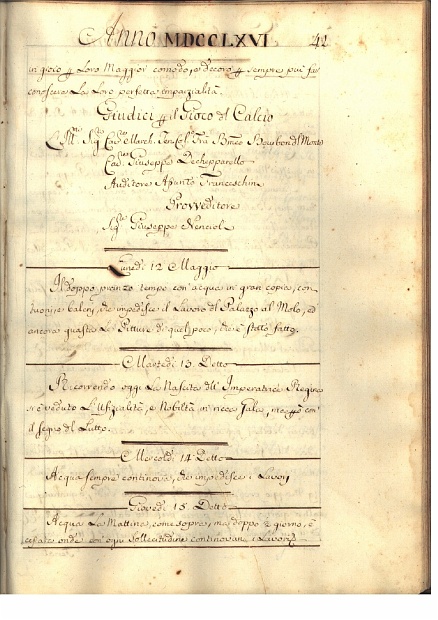 Anno MDCCLXVI 42
in gioco p Loro Maggior comodo, e decoro p sempre piu far
conoscere La Loro perfetta imparzialità.
Giudici p il Gioco del Calcio
Bourbon del Monte
Cav. Giuseppe
Auditore Franceschini
Provveditore
Sigr. Giuseppe
Lunedi 12 Maggio
Il doppo pranzo tempo con acqua in gran copia, con
tuoni, e baleni, che impedisce il Lavoro del Palazzo al Molo, ed
ancora guasta Le Pitture di quel poco, che è stato fatto.
Martedi 13 Detto
Ricorrendo oggi La Nascita dell' Imperatrice Regina
si è veduto L'Ufizialità, e Nobiltà in ricca Gala, ma con
il segno del Lutto.
Mercoldi 14 Detto
Acqua sempre continova, che impedisce i Lavori
Giovedi 15 Detto
Acqua La Mattina, come sopra, ma doppo giorno, è
cessata onde con ogni sollecitudine continovano i Lavori